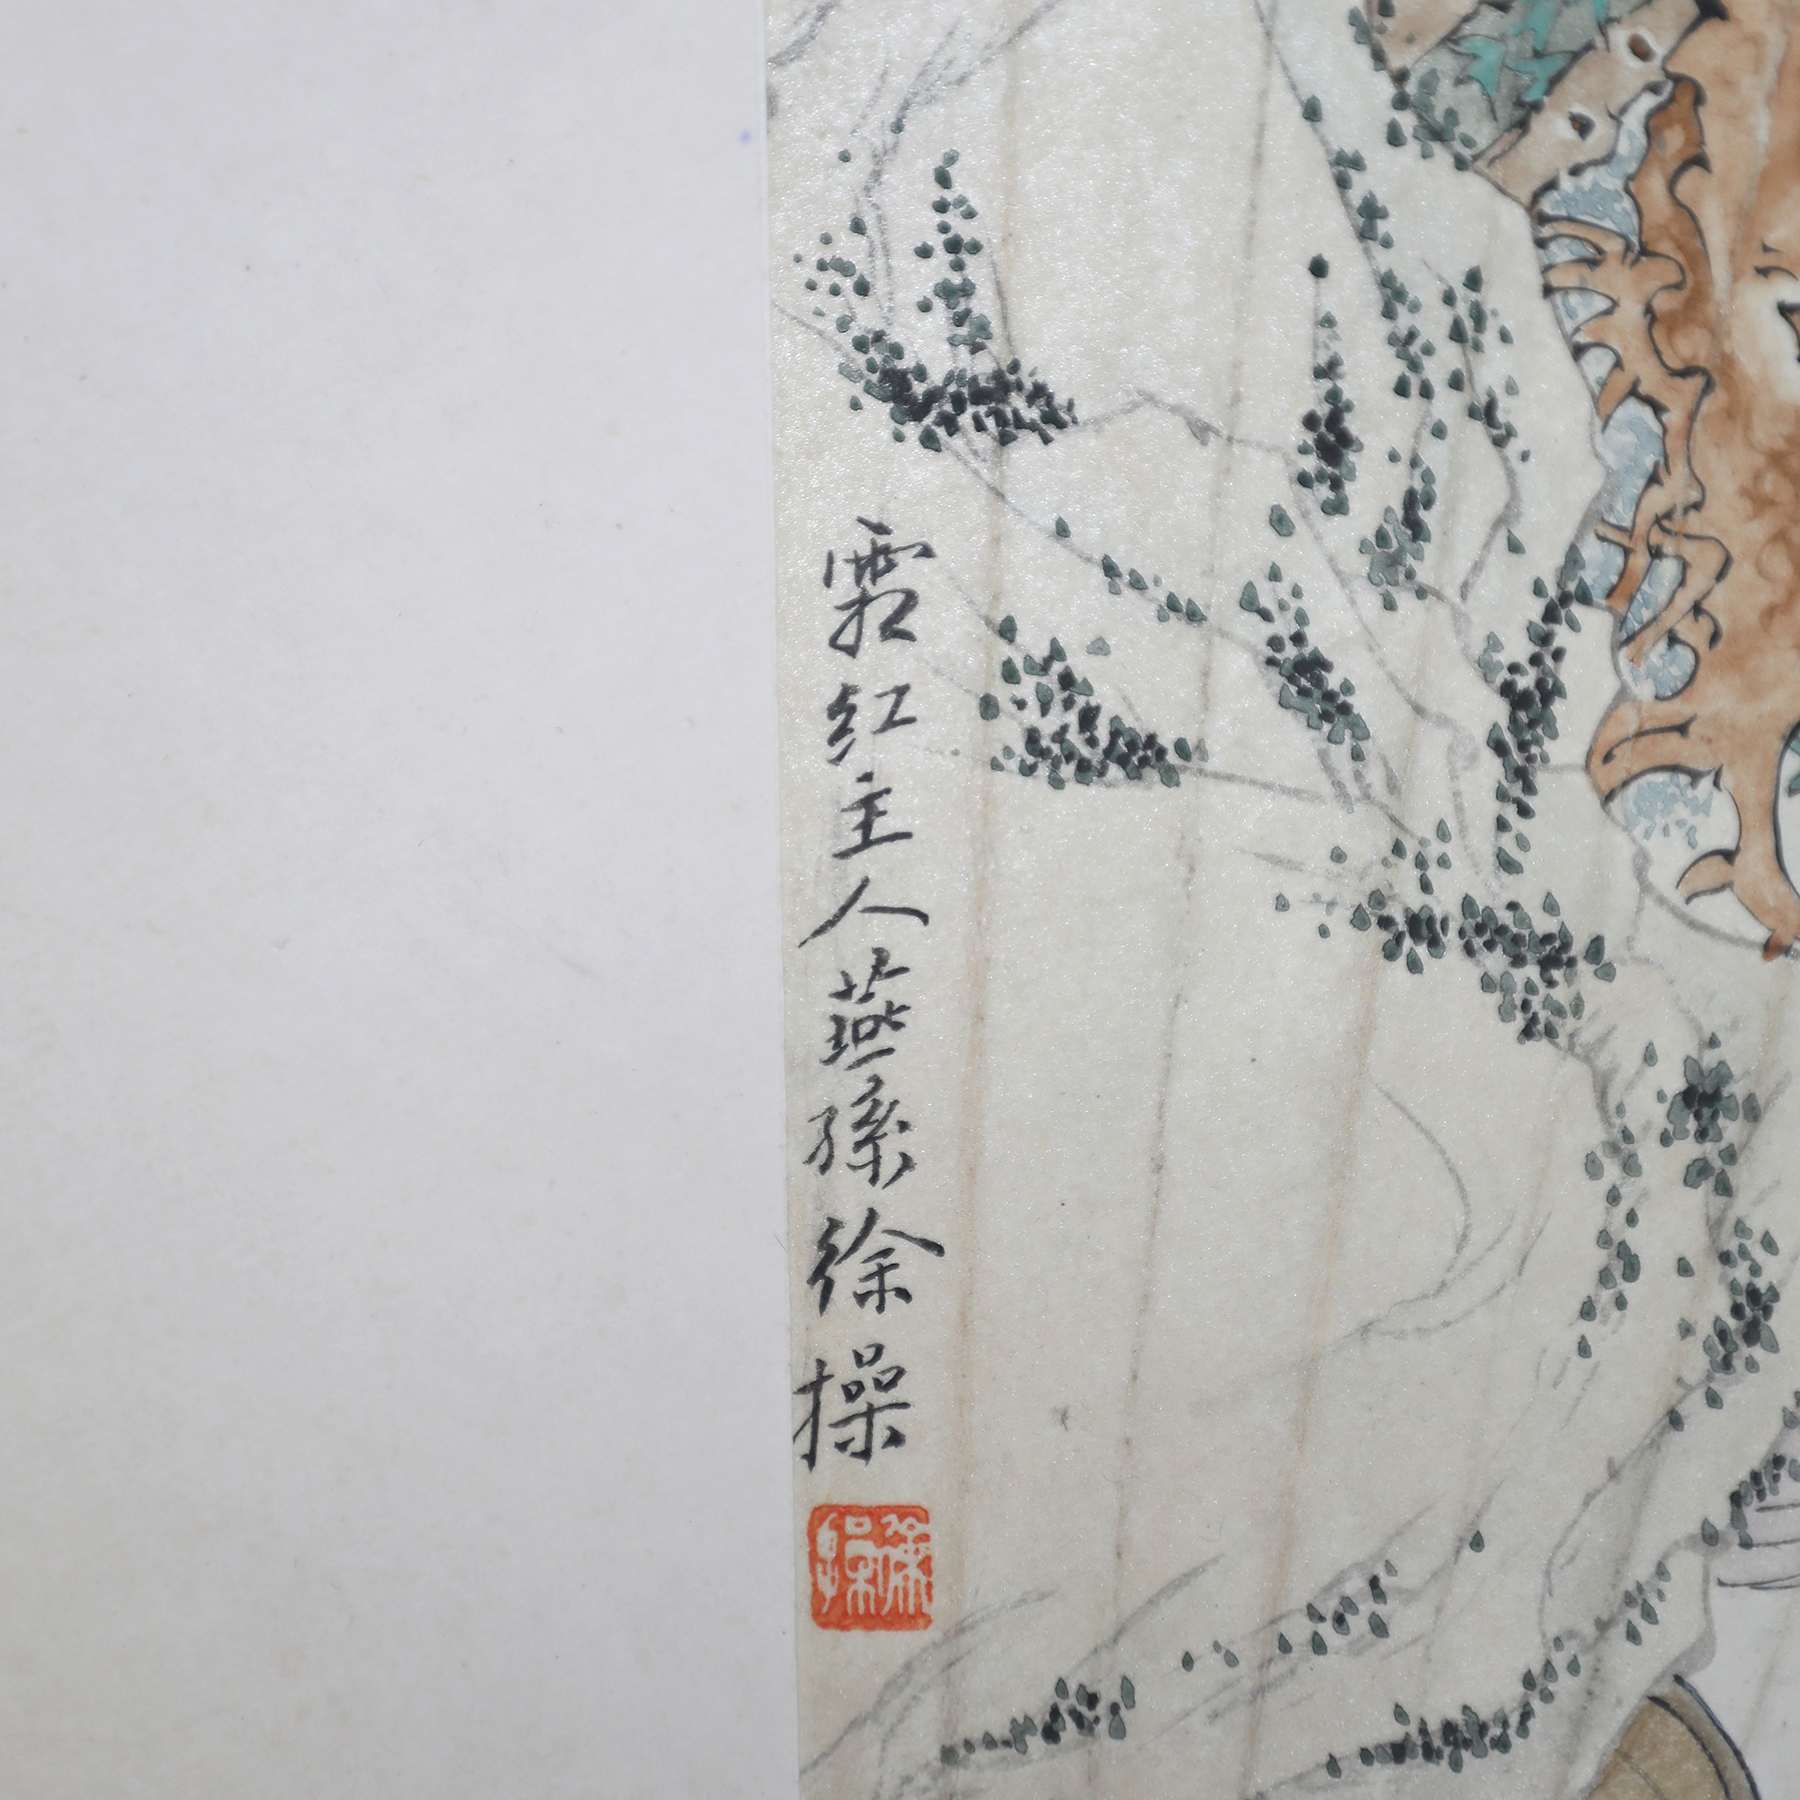 霜紅主人燕孫徐操
徐操